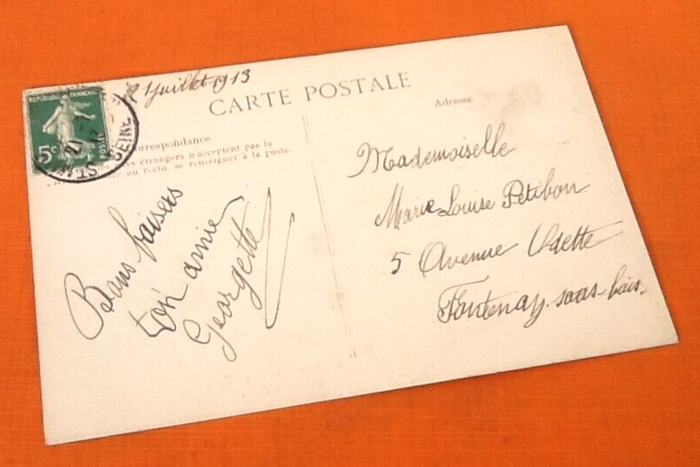 Juillet 1913
CARTE POSTALE
REPUBLIQUE FRANÇAISE
5c
POSTES
21
SEINE
Correspondance
étrangers n'acceptent pas la
au recto. se renseigner à la poste.
Bons baisers
ton amie
Georgette
Adresse
Mademoiselle
Marie Louise Petibon
5 Avenue Odette
Fontenay-sous-bois.